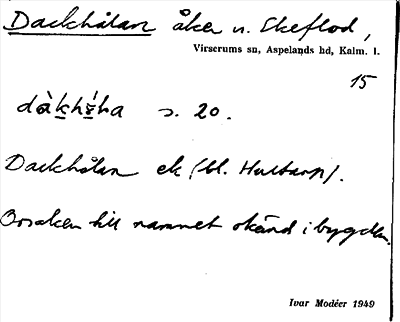 Dackhålan åker n. Ekeflod,
Virserums sn, Aspelands hd, Kalm. l.
15
s. 20.
Dackhålan ek (bl. Hultarp).
Orsaken till namnet okänd i bygden.
Ivar Modéer 1949